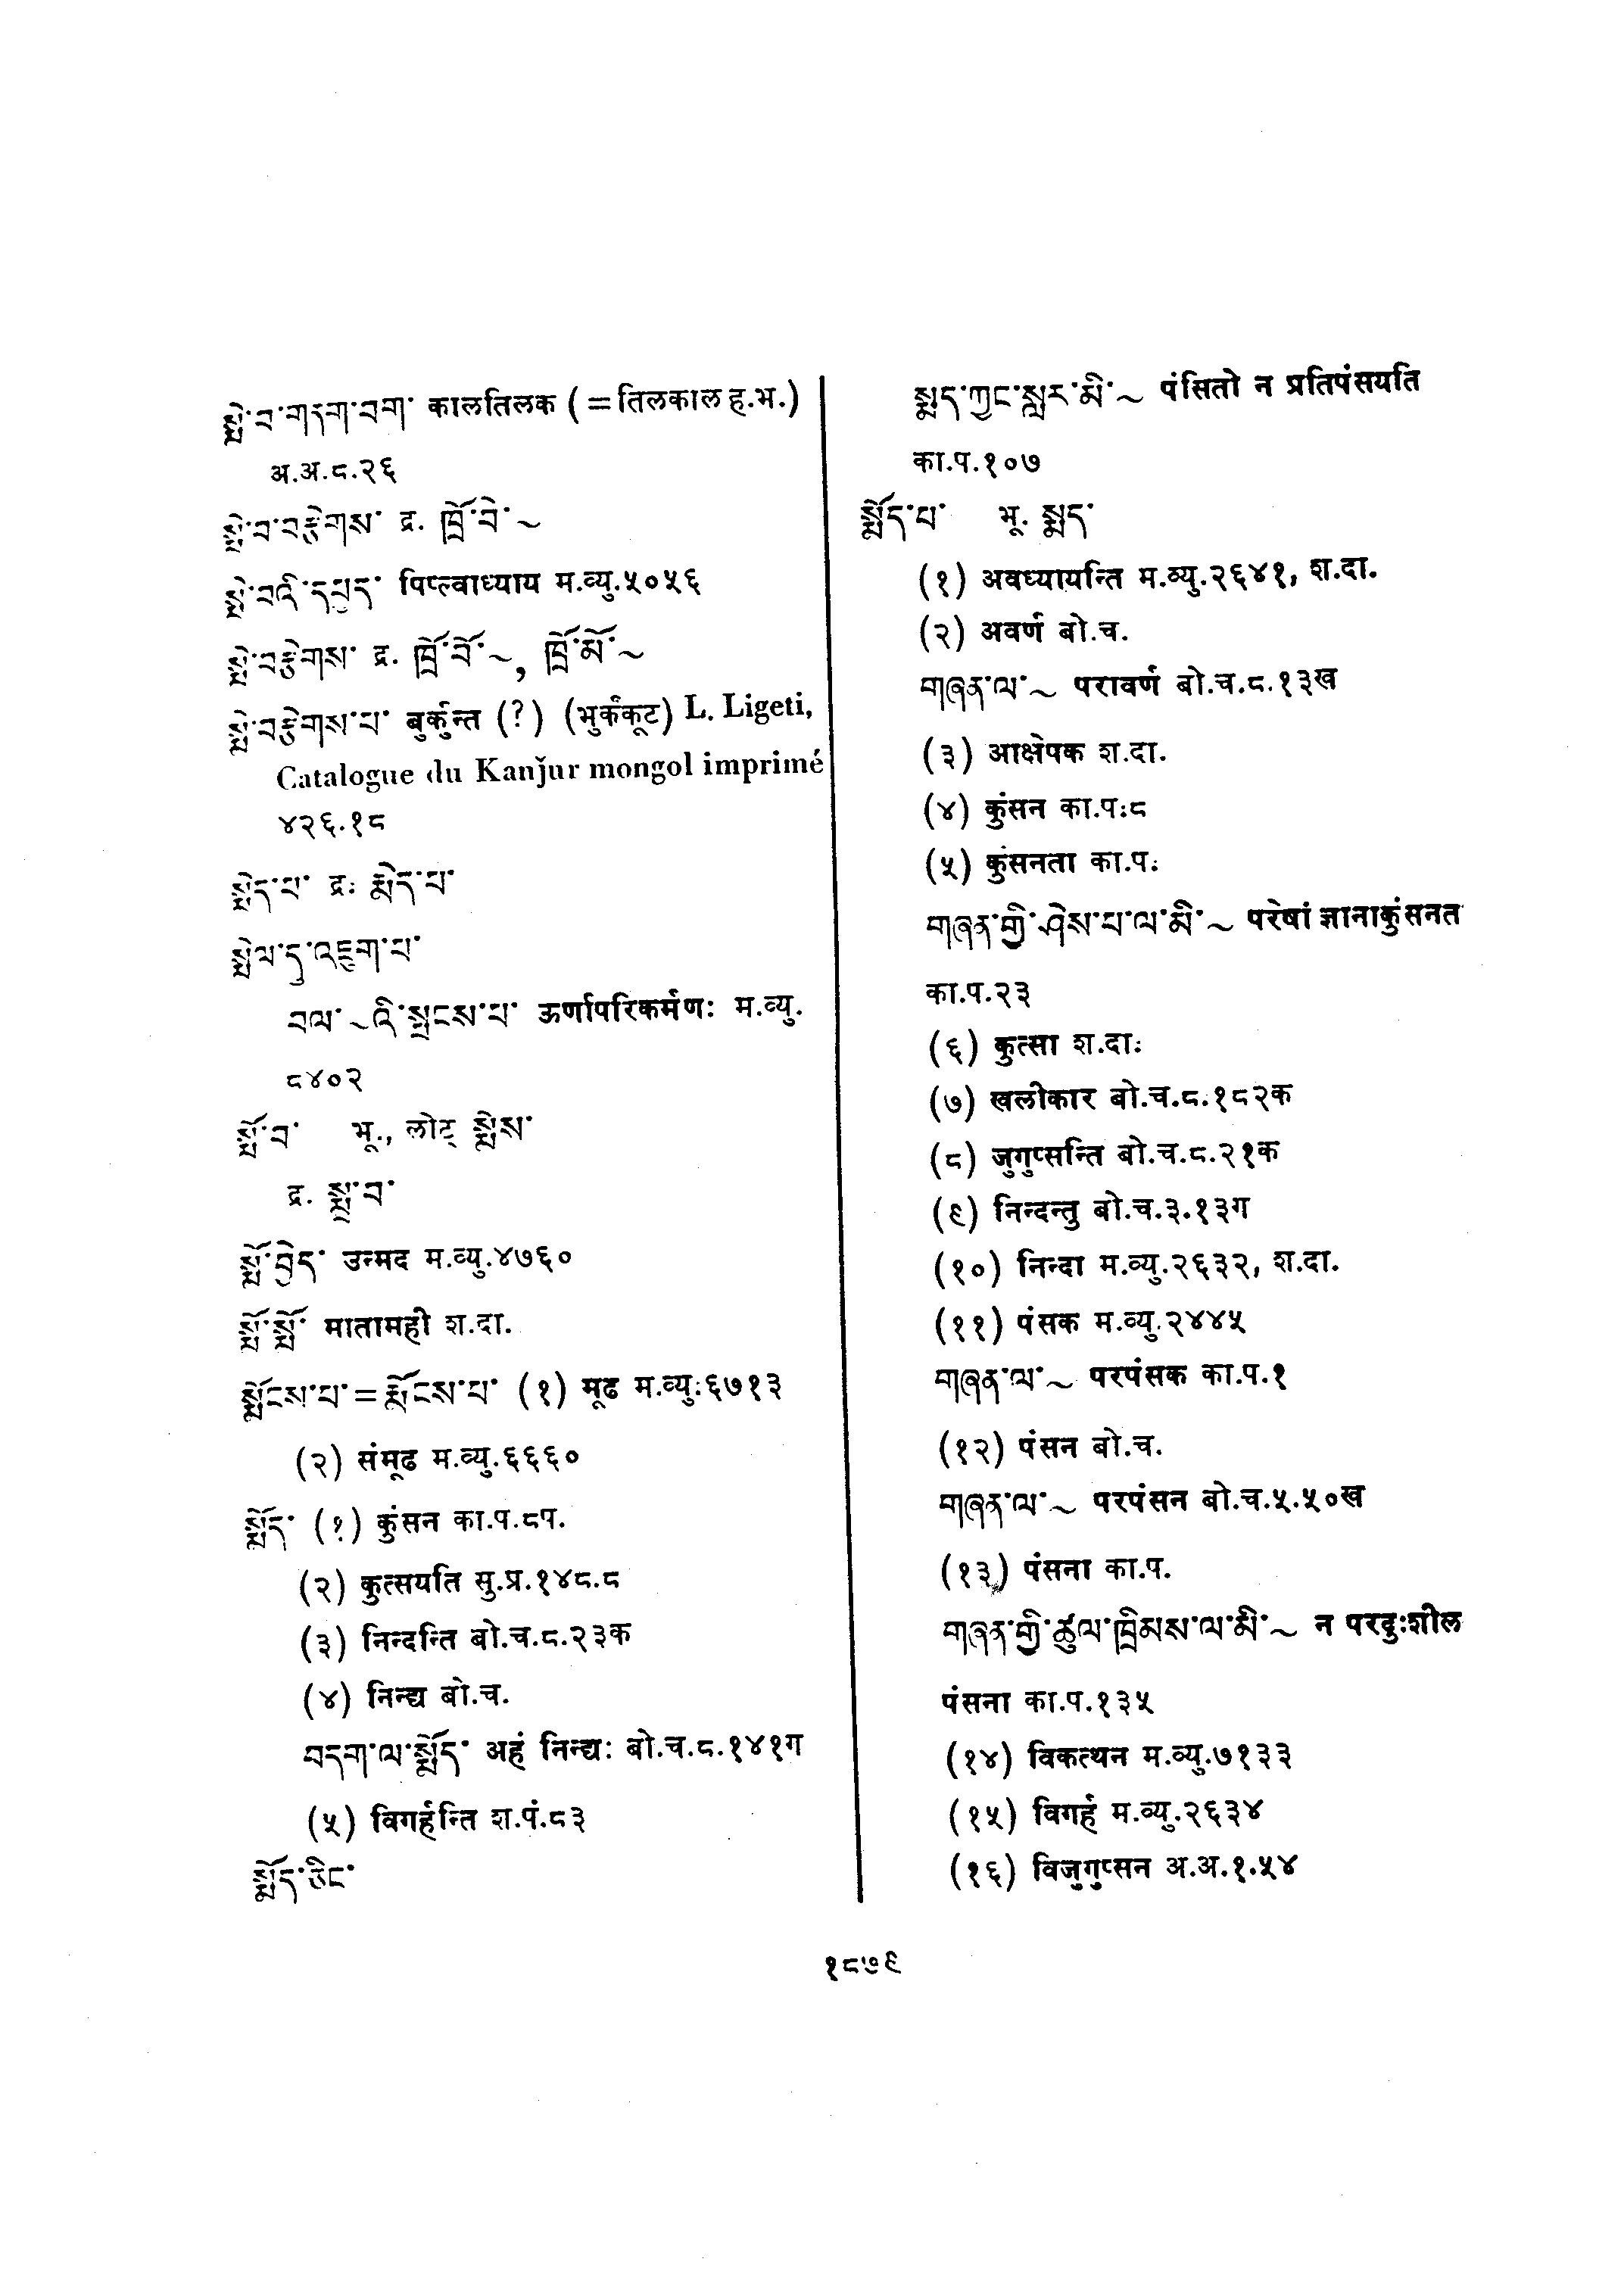 སྨེ་བ་གདག་བག་ कालतिलक (=तिलकाल ह.भ.)
अ.अ.८.२६
སྨེ་བ་བརྩེགས་ द्र. ཁྲོ་བོ་~
སྨེ་བའི་དཔྱད་ पिप्त्वाध्याय म.व्यु.५०५६
སྨེ་བརྩེགས་ द्र. ཁྲོ་བོ་~, ཁྲོ་མོ་~
སྨེ་བརྩེགས་པ་ बुर्कुन्त (?) (भुर्ककूट) L. Ligeti,
Catalogue du Kanǰur mongol imprimé
४२६.१८
སྨེད་པ་ द्र. རྨེད་པ་
སྨེལ་དུ་འཇུག་པ་
བལ་~འི་སྦྱངས་པ་ ऊर्णापरिकर्मणः म.व्यु.
८४०२
སྨྱོ་བ་ भू., लोट् སྨྱོས་
द्र. སྨྱ་བ་
སྨྱོ་བྱེད་ उन्मद म.व्यु.४७६०
སྨོ་སྨོ་ मातामही श.दा.
སྨོངས་པ་=རྨོངས་པ་ (१) मूढ म.व्यु.६७१३
(२) संमूढ म.व्यु.६६६०
སྨོད་ (१) कुंसन का.प.८प.
(२) कुत्सयति सु.प्र.१४८.८
(३) निन्दन्ति बो.च.८.२३क
(४) निन्द्य बो.च.
བདག་ལ་སྨོད་ अहं निन्द्यः बो.च.८.१४१ग
(५) विगर्हन्ति श.पं.८३
སྨོད་ཅིང་
སྨད་ཀྱང་སླར་མི་~ पंसितो न प्रतिपंसयति
का.प.१०७
སྨོད་པ་ भू. སྨད་
(१) अवध्यायन्ति म.व्यु.२६४१, श.दा.
(२) अवर्ण बो.च.
གཞན་ལ་~ परावर्ण बो.च.८.१३ख
(३) आक्षेपक श.दा.
(४) कुंसन का.प.८
(५) कुंसनता का.प.
གཞན་གྱི་ཤེས་པ་ལ་མི་~ परेषां ज्ञानाकुंसनत
का.प.२३
(६) कुत्सा श.दा.
(७) खलीकार बो.च.८.१८२क
(८) जुगुप्सन्ति बो.च.८.२१क
(९) निन्दन्तु बो.च.३.१३ग
(१०) निन्दा म.व्यु.२६३२, श.दा.
(११) पंसक म.व्यु.२४४५
གཞན་ལ་~ परपंसक का.प.१
(१२) पंसन बो.च.
གཞན་ལ་~ परपंसन बो.च.५.५०ख
(१३) पंसना का.प.
གཞན་གྱི་ཚུལ་ཁྲིམས་ལ་མི་~ न परदुःशील
पंसना का.प.१३५
(१४) विकत्थन म.व्यु.७१३३
(१५) विगर्ह म.व्यु.२६३४
(१६) विजुगुप्सन अ.अ.१.५४
१८७९